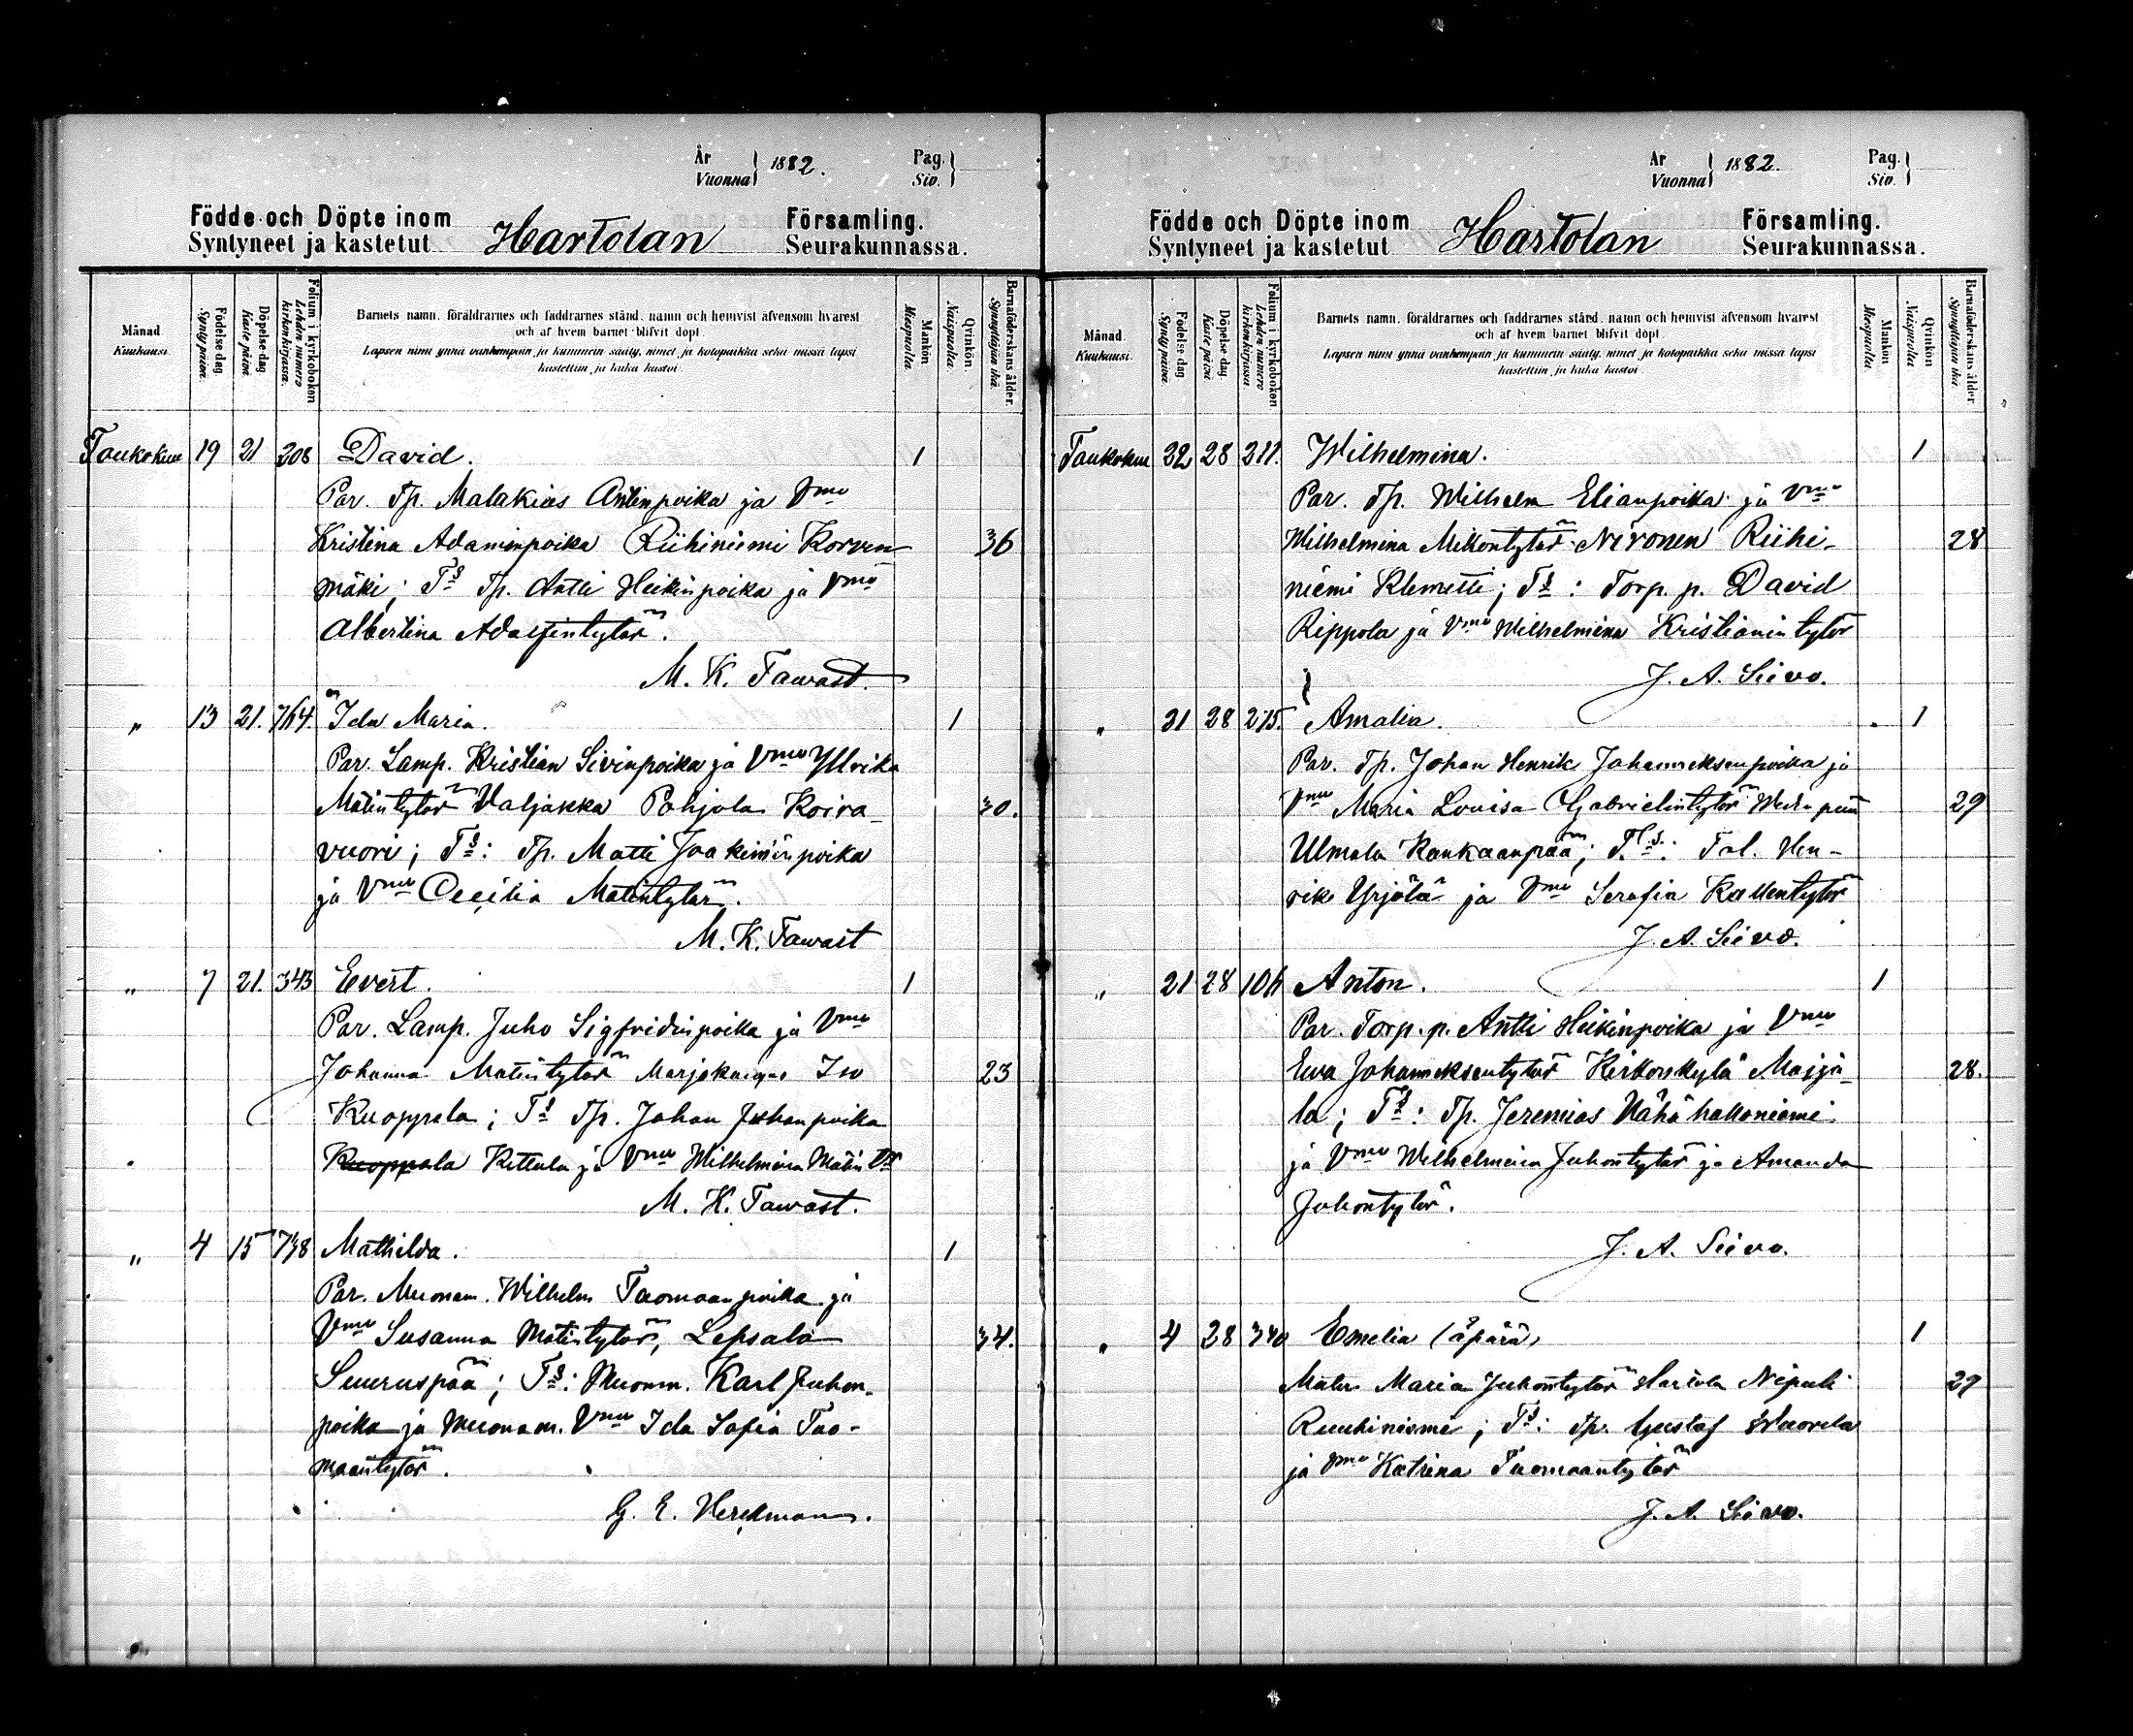 År
Vuonna } 1882.
Pag.
Siv. }
Födde och Döpte inom Hartolan Församling.
Syntyneet ja kastetut Seurakunnassa.
Månad. Kuukausi.
Födelse dag. Synty päivä.
Döpelse dag. Kaste päivä.
Folium i kyrkoboken Lehden numero kirkonkirjassa.
Barnets namn, föräldrarnes och faddrarnes stånd, namn och hemvist äfvensom hvarest
och af hvem barnet blifvit döpt.
Lapsen nimi ynnä vanhempain ja kummein sääty, nimet ja kotopaikka sekä missä lapsi
kastettiin ja kuka kastoi.
Mankön. Miespuolta.
Qvinkön. Naispuolta.
Barnaföderskans ålder. Synnyttäjän ikä.
Toukokuu 19 21 208 David. 1
Par. Tp. Malakias Antinpoika ja Vmo
Kristina Adaminpoika Riihiniemi Korven 36
mäki; Ts Tp. Antti Heikinpoika ja Vmo
Albertina Adolfintytär.
M. K. Tawast.
" 13 21. 764. Ida Maria. 1
Par. Lamp. Kristian Sivinpoika ja Vmo Ulrika
Matintytär Valjakka Pohjola Koira- 30.
vuori; Ts: Tp. Matti Joakiminpoika
ja Vmo Cecilia Matintytär.
M. K. Tawast
" 7 21. 343 Evert. 1
Par. Lamp. Juho Sigfridinpoika ja Vmo
Johanna Matintytär Marjokangas Iso 23
Kuoppala; Ts Tp. Johan Johanpoika
Kuoppala Kettula ja Vmo Wilhelmina Matin tr
M. K. Tawast.
" 4 15 738 Mathilda. 1
Par. Muonam. Wilhelm Taomaanpoika ja
Vmo Susanna Matintytär, Lepsala 34.
Suuruspää; Ts: Muonm. Karl Juhon-
poika ja Muonam. Vmo Ida Sofia Tao-
maantytär.
G. E. Herckman.
År
Vuonna } 1882.
Pag.
Siv. }
Födde och Döpte inom Hartolan Församling.
Syntyneet ja kastetut Seurakunnassa.
Månad. Kuukausi.
Födelse dag. Synty päivä.
Döpelse dag. Kaste päivä.
Folium i kyrkoboken Lehden numero kirkonkirjassa.
Barnets namn, föräldrarnes och faddrarnes stånd, namn och hemvist äfvensom hvarest
och af hvem barnet blifvit döpt.
Lapsen nimi ynnä vanhempain ja kummein sääty, nimet ja kotopaikka sekä missä lapsi
kastettiin ja kuka kastoi.
Mankön Miespuolta.
Qvinkön Naispuolta.
Barnaföderskans ålder. Synnyttäjän ikä.
Toukokuu 22 28 211. Wilhelmina. 1
Par. Tp. Wilhelm Elianpoika ja Vmo
Wilhelmina Mikontytär Nironen Riihi- 28
niemi Klemetti; Ts: Torp. p. David
Rippola ja Vmo Wilhelmina Kristianin tytär
J. A. Siivo.
" 21 28 275. Amalia. 1
Par. Tp. Johan Henrik Johanneksenpoika ja
Vmo Maria Lovisa Gabrielintytär 29
Ulmala Kankaanpää; Ts: Tal. Hen-
rik Yrjölä ja Vmo Serafia Kallentytär
J. A. Siivo.
" 21 28 106 Anton. 1
Par. Torp. p. Antti Heikinpoika ja Vmo
Ewa Johanneksentytär Kirkonkylä Marja- 28.
la; Ts: Tp. Jeremias Vähähalloniemi
ja Vmo Wilhelmina Juhontytär ja Amanda
Juhontytär.
J. A. Siivo.
" 4 28 340 Emelia (äpärä) 1
Mater Maria Juhontytär Hartola Nipuli 29
Ruuhiniemi; Ts: Tp. Gustaf Waorela
ja Vmo Katrina Taomaantytär
J. A. Siivo.